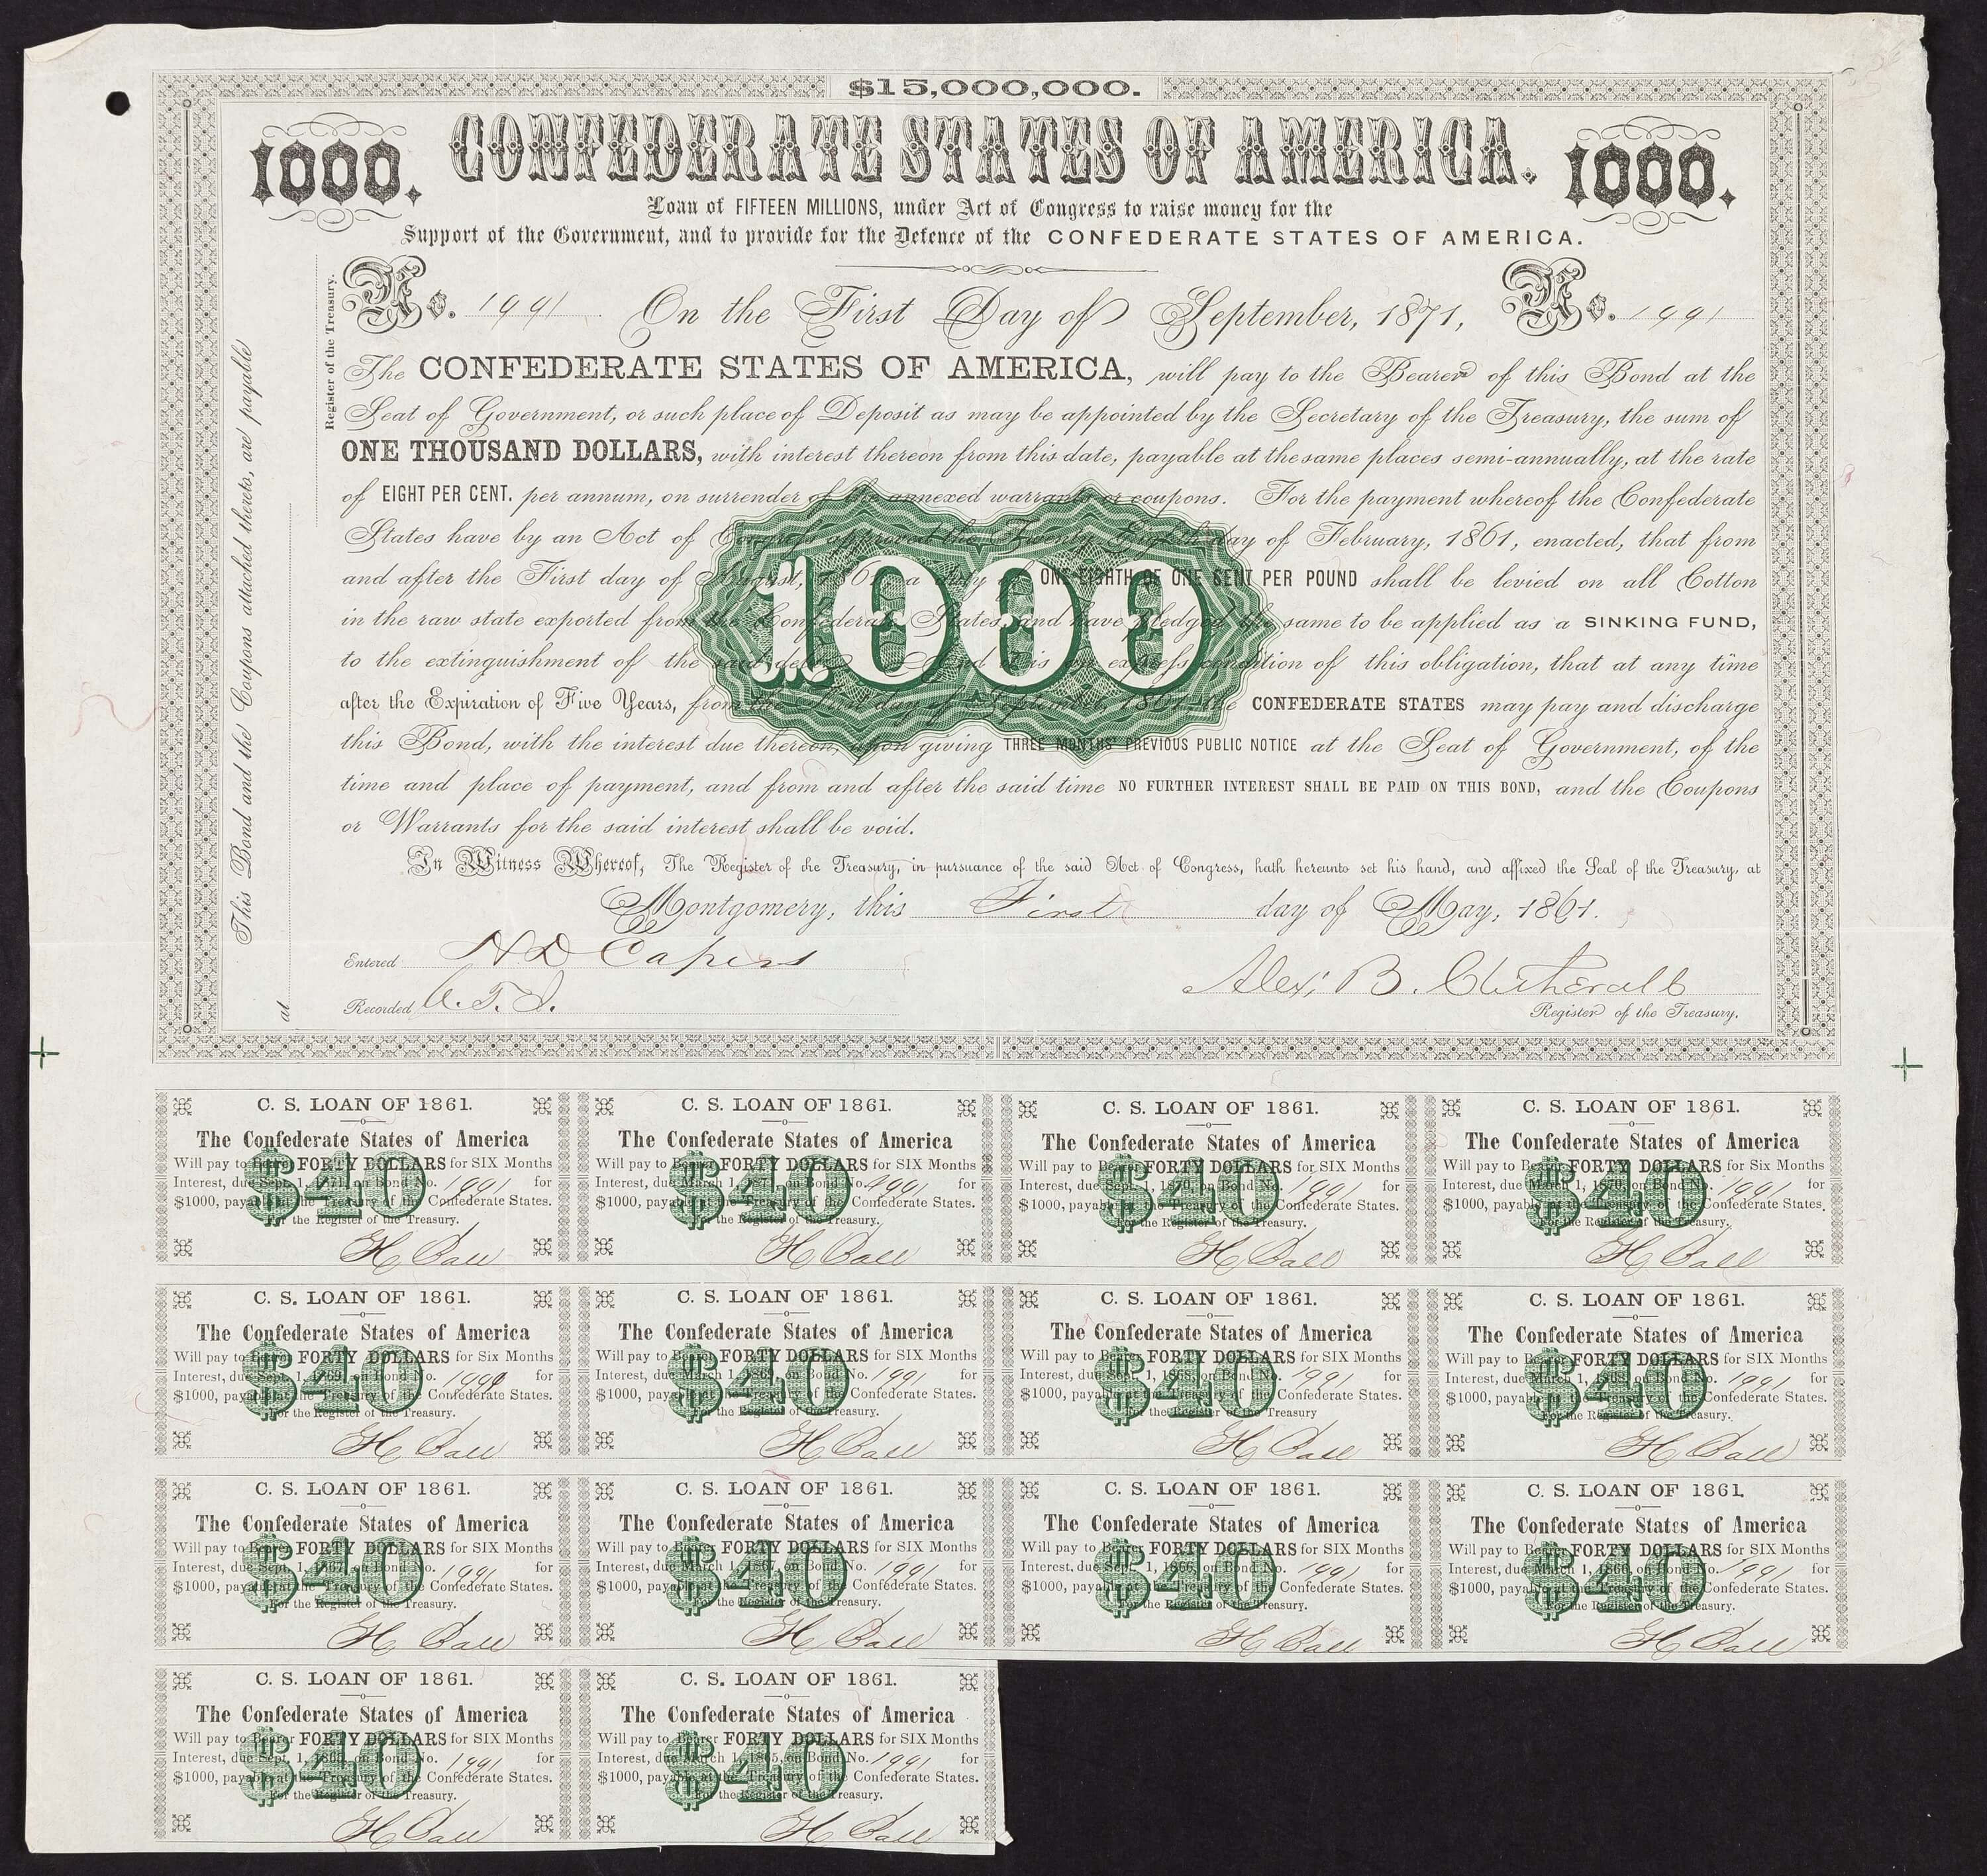 $15,000,000.
1000. CONFEDERATE STATES OF AMERICA. 1000.
Loan of FIFTEEN MILLIONS, under Act of Congress to raise money for the
Support of the Government, and to provide for the Defence of the CONFEDERATE STATES OF AMERICA.
No. 1991 On the First Day of September, 1871, No. 1991
The CONFEDERATE STATES OF AMERICA, will pay to the Bearer of this Bond at the
Seat of Government, or such place of Deposit as may be appointed by the Secretary of the Treasury, the sum of
ONE THOUSAND DOLLARS, with interest thereon from this date, payable at the same places semi-annually, at the rate
of EIGHT PER CENT. per annum, on surrender of the annexed warrants or coupons. For the payment whereof the Confederate
States have by an Act of Congress approved the Twenty Eighth day of February, 1861, enacted, that from
and after the First day of August, 1861, a duty of ONE-EIGHTH OF ONE CENT PER POUND shall be levied on all Cotton
in the raw state exported from the Confederate States, and have pledged the same to be applied as a SINKING FUND,
to the extinguishment of the said debt. And it is an express condition of this obligation, that at any time
after the Expiration of Five Years, from the First day of September, 1861, the CONFEDERATE STATES may pay and discharge
this Bond, with the interest due thereon, upon giving THREE MONTHS' PREVIOUS PUBLIC NOTICE at the Seat of Government, of the
time and place of payment, and from and after the said time NO FURTHER INTEREST SHALL BE PAID ON THIS BOND, and the Coupons
or Warrants for the said interest shall be void.
1000
In Witness Whereof, The Register of the Treasury, in pursuance of the said Act of Congress, hath hereunto set his hand, and affixed the Seal of the Treasury, at
Montgomery, this First day of May, 1861.
Entered H. D. Capers
Recorded C. T. J.
Alex. B. Clitherall
Register of the Treasury.
This Bond and the Coupons attached thereto, are payable
at
Register of the Treasury.
C. S. LOAN OF 1861.
The Confederate States of America
Will pay to Bearer FORTY DOLLARS for SIX Months
Interest, due Sept. 1, 1871, on Bond No. 1991 for
$1000, payable at the Treasury of the Confederate States.
For the Register of the Treasury.
$40
H Ball
C. S. LOAN OF 1861.
The Confederate States of America
Will pay to Bearer FORTY DOLLARS for SIX Months
Interest, due March 1, 1871, on Bond No. 1991 for
$1000, payable at the Treasury of the Confederate States.
For the Register of the Treasury.
$40
H Ball
C. S. LOAN OF 1861.
The Confederate States of America
Will pay to Bearer FORTY DOLLARS for SIX Months
Interest, due Sept. 1, 1870, on Bond No. 1991 for
$1000, payable at the Treasury of the Confederate States.
For the Register of the Treasury.
$40
H Ball
C. S. LOAN OF 1861.
The Confederate States of America
Will pay to Bearer FORTY DOLLARS for Six Months
Interest, due March 1, 1870, on Bond No. 1991 for
$1000, payable at the Treasury of the Confederate States.
For the Register of the Treasury.
$40
H Ball
C. S. LOAN OF 1861.
The Confederate States of America
Will pay to Bearer FORTY DOLLARS for Six Months
Interest, due Sept. 1, 1869, on Bond No. 1991 for
$1000, payable at the Treasury of the Confederate States.
For the Register of the Treasury.
$40
H Ball
C. S. LOAN OF 1861.
The Confederate States of America
Will pay to Bearer FORTY DOLLARS for SIX Months
Interest, due March 1, 1869, on Bond No. 1991 for
$1000, payable at the Treasury of the Confederate States.
For the Register of the Treasury.
$40
H Ball
C. S. LOAN OF 1861.
The Confederate States of America
Will pay to Bearer FORTY DOLLARS for SIX Months
Interest, due Sept. 1, 1868, on Bond No. 1991 for
$1000, payable at the Treasury of the Confederate States.
For the Register of the Treasury
$40
H Ball
C. S. LOAN OF 1861.
The Confederate States of America
Will pay to Bearer FORTY DOLLARS for SIX Months
Interest, due March 1, 1868, on Bond No. 1991 for
$1000, payable at the Treasury of the Confederate States.
For the Register of the Treasury.
$40
H Ball
C. S. LOAN OF 1861.
The Confederate States of America
Will pay to Bearer FORTY DOLLARS for SIX Months
Interest, due Sept. 1, 1867, on Bond No. 1991 for
$1000, payable at the Treasury of the Confederate States.
For the Register of the Treasury.
$40
H Ball
C. S. LOAN OF 1861.
The Confederate States of America
Will pay to Bearer FORTY DOLLARS for SIX Months
Interest, due March 1, 1867, on Bond No. 1991 for
$1000, payable at the Treasury of the Confederate States.
For the Register of the Treasury.
$40
H Ball
C. S. LOAN OF 1861.
The Confederate States of America
Will pay to Bearer FORTY DOLLARS for SIX Months
Interest, due Sept. 1, 1866, on Bond No. 1991 for
$1000, payable at the Treasury of the Confederate States.
For the Register of the Treasury.
$40
H Ball
C. S. LOAN OF 1861.
The Confederate States of America
Will pay to Bearer FORTY DOLLARS for SIX Months
Interest, due March 1, 1866, on Bond No. 1991 for
$1000, payable at the Treasury of the Confederate States.
For the Register of the Treasury.
$40
H Ball
C. S. LOAN OF 1861.
The Confederate States of America
Will pay to Bearer FORTY DOLLARS for SIX Months
Interest, due Sept. 1, 1865, on Bond No. 1991 for
$1000, payable at the Treasury of the Confederate States.
For the Register of the Treasury.
$40
H Ball
C. S. LOAN OF 1861.
The Confederate States of America
Will pay to Bearer FORTY DOLLARS for SIX Months
Interest, due March 1, 1865, on Bond No. 1991 for
$1000, payable at the Treasury of the Confederate States.
For the Register of the Treasury.
$40
H Ball